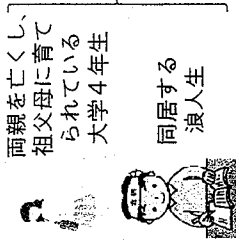 両親を亡くし、
祖父母に育て
られている
大学4年生
同居する
浪人生